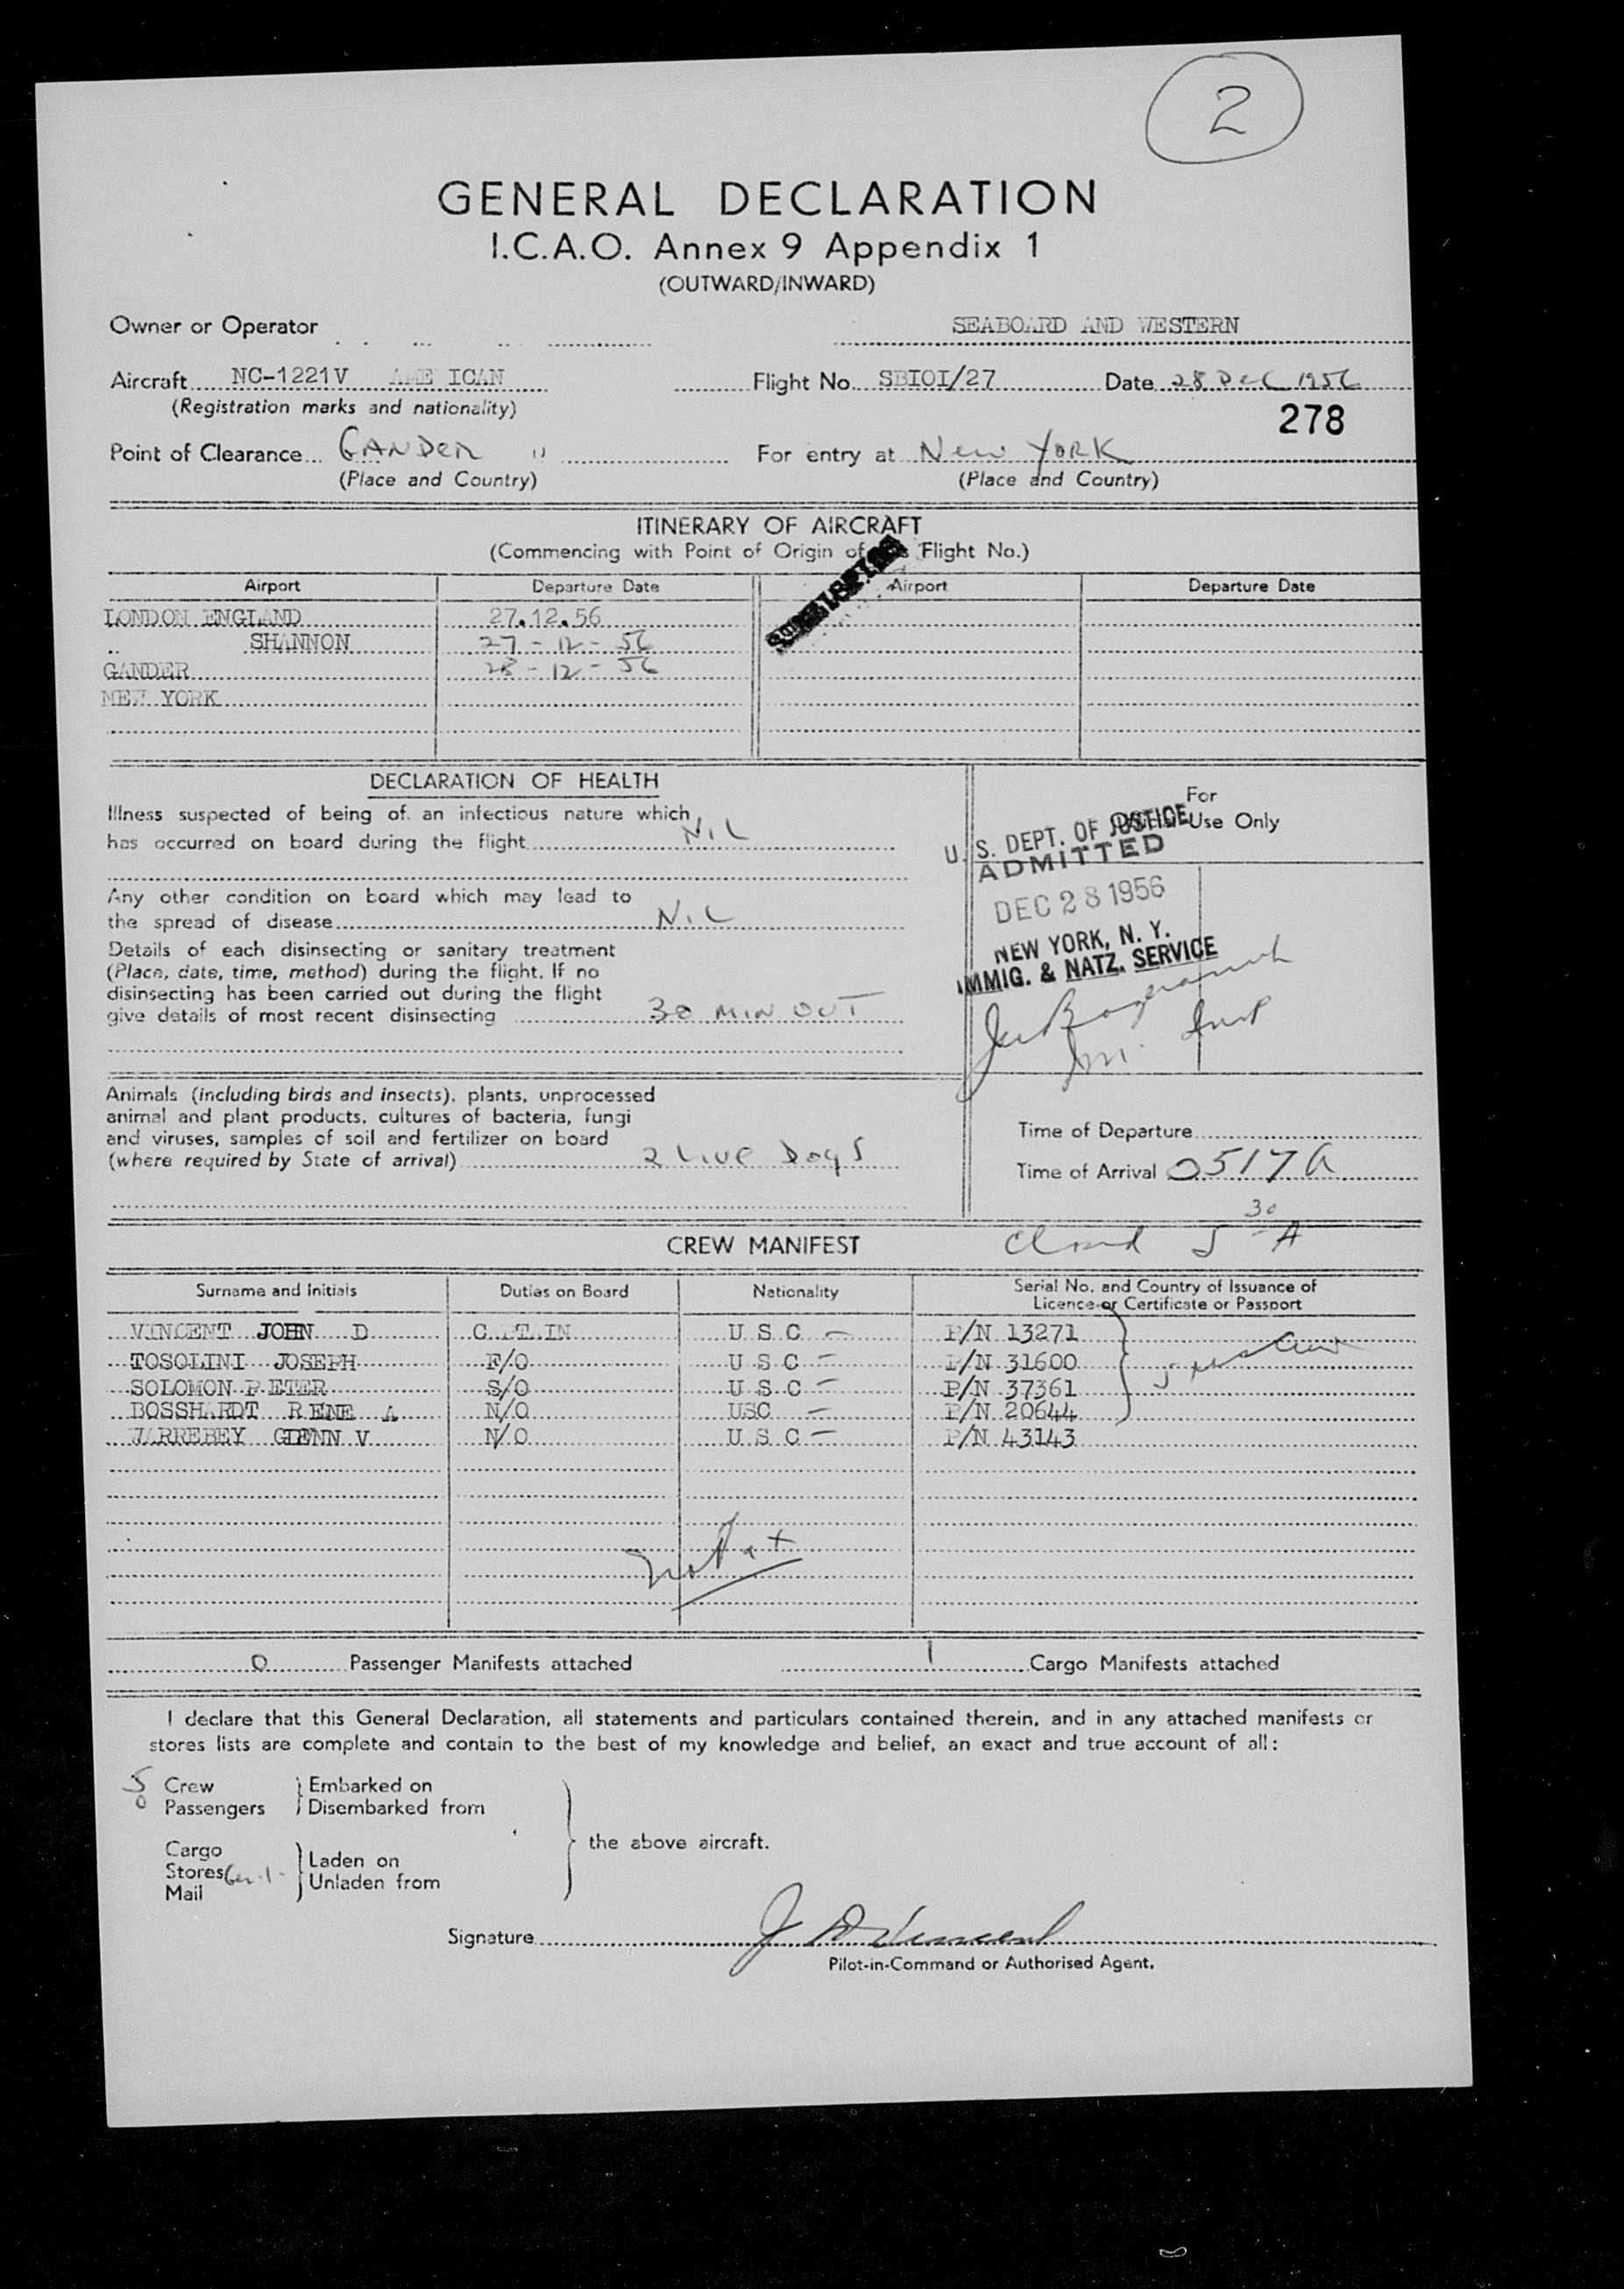 2
GENERAL DECLARATION
I.C.A.O. Annex 9 Appendix 1
(OUTWARD/INWARD)
Owner or Operator SEABOARD AND WESTERN
Aircraft NC-1221V AME ICAN Flight No. SBIOI/27 Date 28 Dec 1956
(Registration marks and nationality)
278
Point of Clearance GANDER " For entry at New YORK
(Place and Country) (Place and Country)
ITINERARY OF AIRCRAFT
(Commencing with Point of Origin of Flight No.)
Airport Departure Date Airport Departure Date
LONDON ENGLAND 27.12.56
" SHANNON 27-12-56
GANDER 28-12-56
NEW YORK
DECLARATION OF HEALTH
For
Use Only
Illness suspected of being of an infectious nature which
has occurred on board during the flight NIL
U. S. DEPT. OF JUSTICE
ADMITTED
DEC 28 1956
NEW YORK, N. Y.
IMMIG. & NATZ. SERVICE
Any other condition on board which may lead to
the spread of disease NIL
Details of each disinsecting or sanitary treatment
(Place, date, time, method) during the flight. If no
disinsecting has been carried out during the flight
give details of most recent disinsecting 30 MIN OUT
Animals (including birds and insects), plants, unprocessed
animal and plant products, cultures of bacteria, fungi
and viruses, samples of soil and fertilizer on board
(where required by State of arrival) 2 Live Dogs
Time of Departure
Time of Arrival 0517A
CREW MANIFEST 5 30 A
Surname and Initials Duties on Board Nationality Serial No. and Country of Issuance of
Licence or Certificate or Passport
VINCENT JOHN D C PT IN U S C - P/N 13271
TOSOLINI JOSEPH F/O U S C - P/N 31600
SOLOMON PETER S/O U S C - P/N 37361
BOSSHARDT RENE A N/O USC - P/N 20644
WARREBEY GLENN V N/O U S C - P/N 43143
0 Passenger Manifests attached 1 Cargo Manifests attached
I declare that this General Declaration, all statements and particulars contained therein, and in any attached manifests or
stores lists are complete and contain to the best of my knowledge and belief, an exact and true account of all:
5 Crew Embarked on
0 Passengers Disembarked from
the above aircraft.
Cargo
Stores Laden on
Mail Unladen from
Signature J D Vincent
Pilot-in-Command or Authorised Agent.